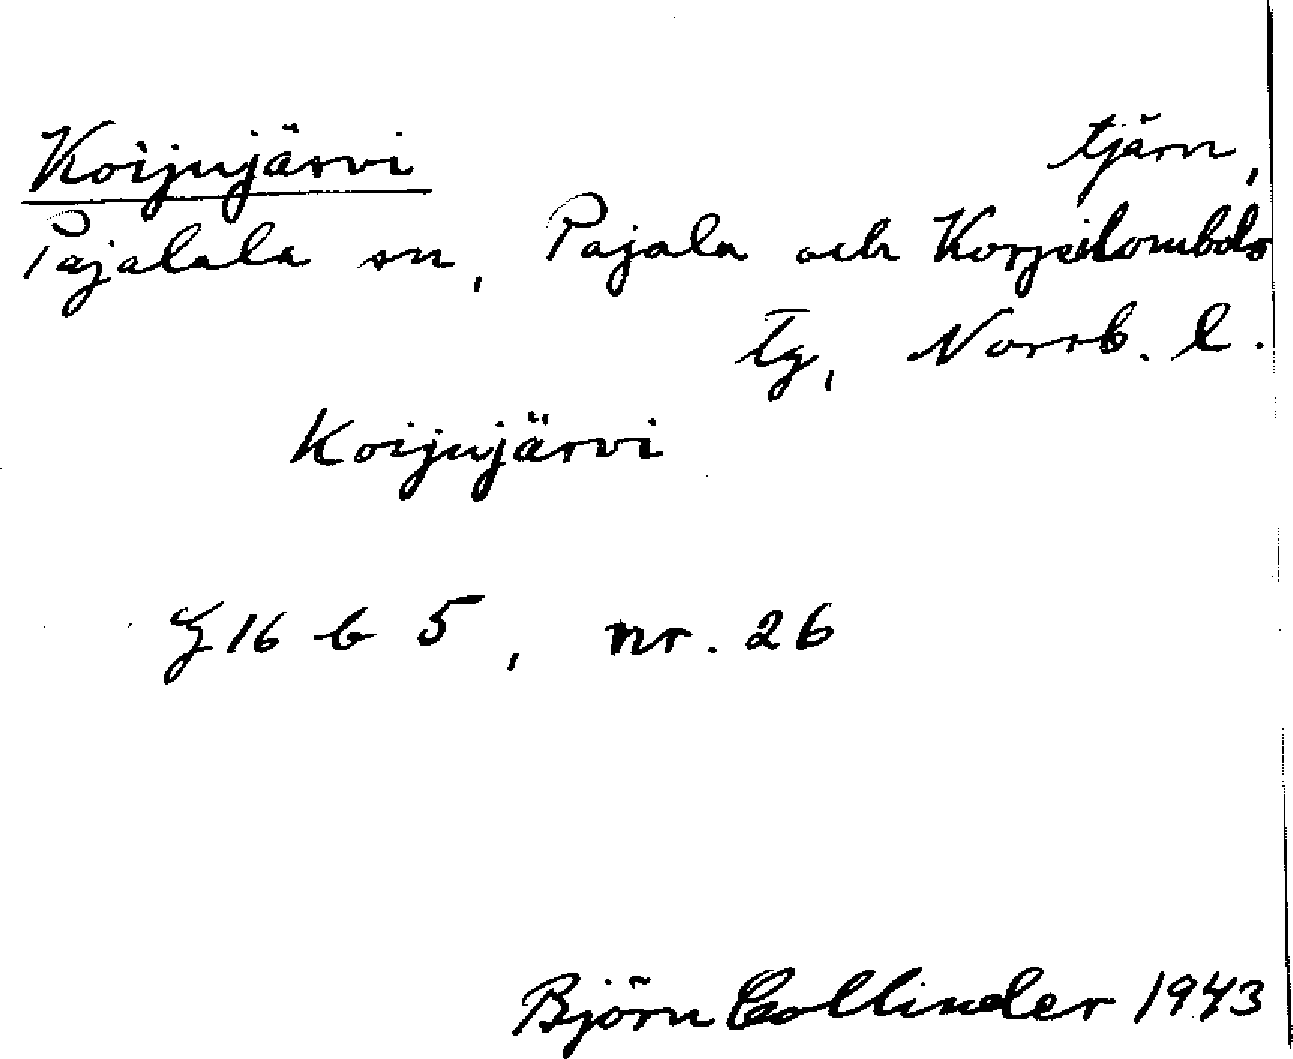 Koijujärvi tjärn,
Pajalala sn, Pajala och Korpilombolo
tg, Norrb. l.
Koijujärvi
16 b 5, nr. 26
Björn Collinder 1943